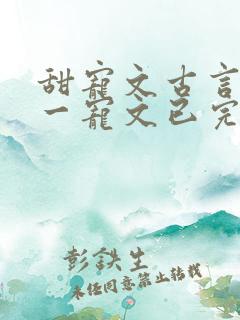 甜宠文古言
一宠文已完
彭铁生
未经同意禁止转载